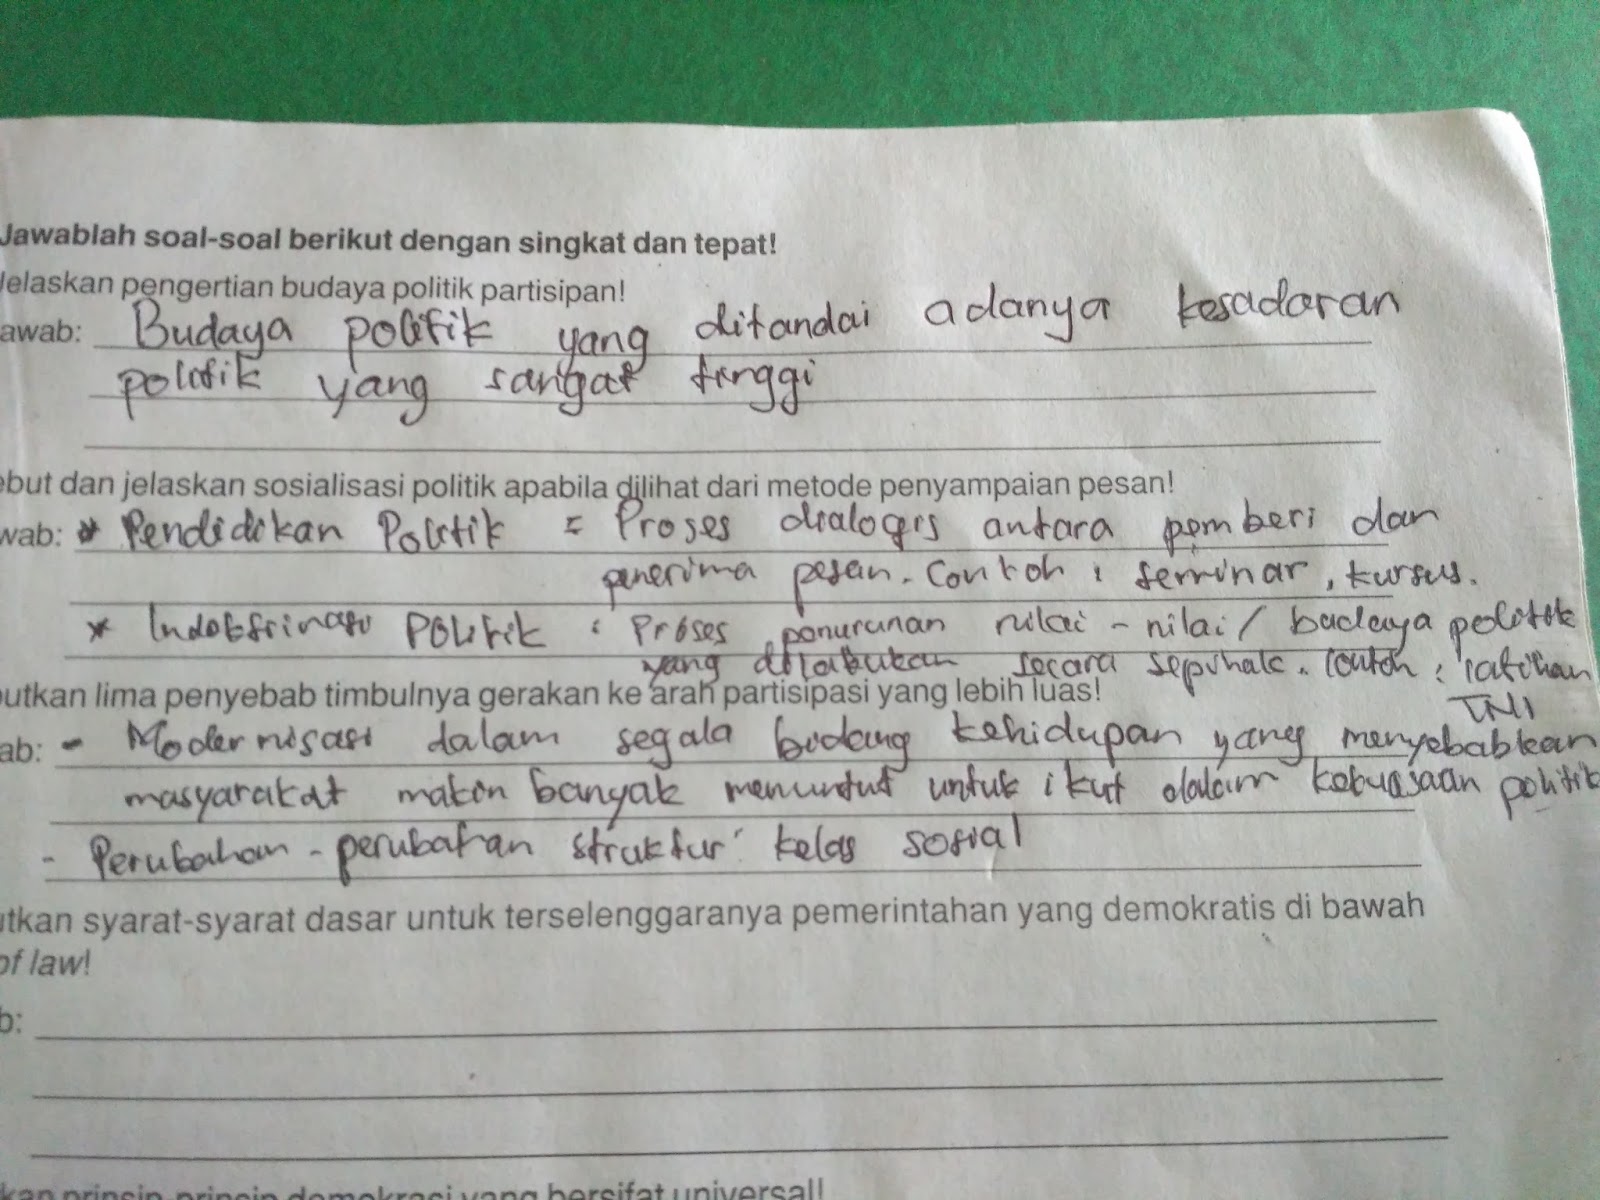 Jawablah soal-soal berikut dengan singkat dan tepat!
Jelaskan pengertian budaya politik partisipan!
awab: Budaya politik yang ditandai adanya kesadaran
politik yang sangat tinggi
ebut dan jelaskan sosialisasi politik apabila dilihat dari metode penyampaian pesan!
wab: * Pendidikan Politik = Proses dialogis antara pemberi dan
penerima pesan. Contoh : seminar, kursus.
* Indoktrinasi Politik : Proses penurunan nilai - nilai / budaya politik
yang dilakukan secara sepihak. Contoh : latihan
TNI
butkan lima penyebab timbulnya gerakan ke arah partisipasi yang lebih luas!
ab: - Modernisasi dalam segala bidang kehidupan yang menyebabkan
masyarakat makin banyak menuntut untuk ikut dalam kekuasaan politik
- Perubahan - perubahan struktur kelas sosial
utkan syarat-syarat dasar untuk terselenggaranya pemerintahan yang demokratis di bawah
of law!
b:
kan prinsip-prinsip demokrasi yang bersifat universal!